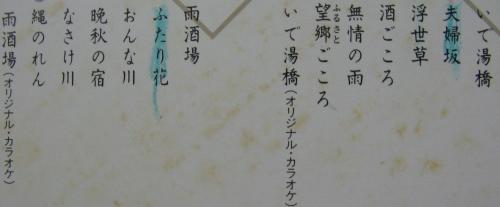 いで湯橋
夫婦坂
浮世草
酒ごころ
無情の雨
望郷ごころ
ふるさと
いで湯橋(オリジナル・カラオケ)
雨酒場
ふたり花
おんな川
晩秋の宿
なさけ川
縄のれん
雨酒場(オリジナル・カラオケ)